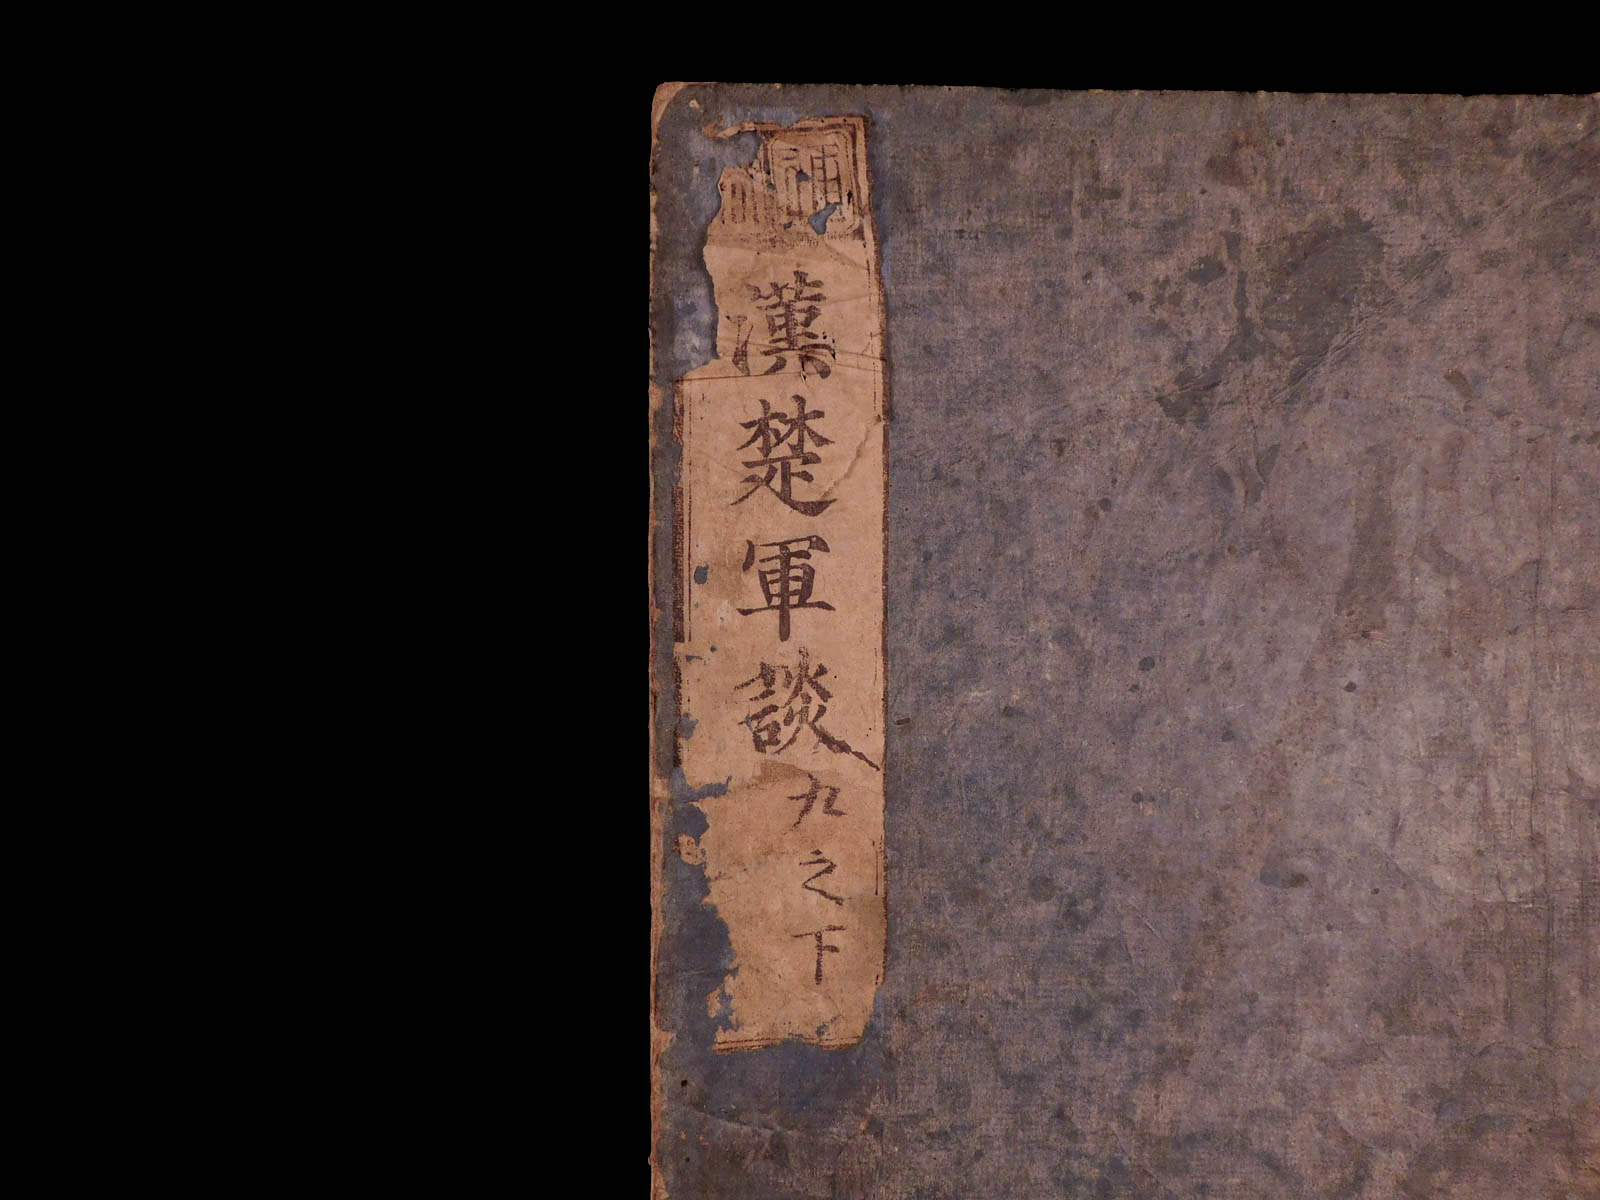 漢楚軍談九之下